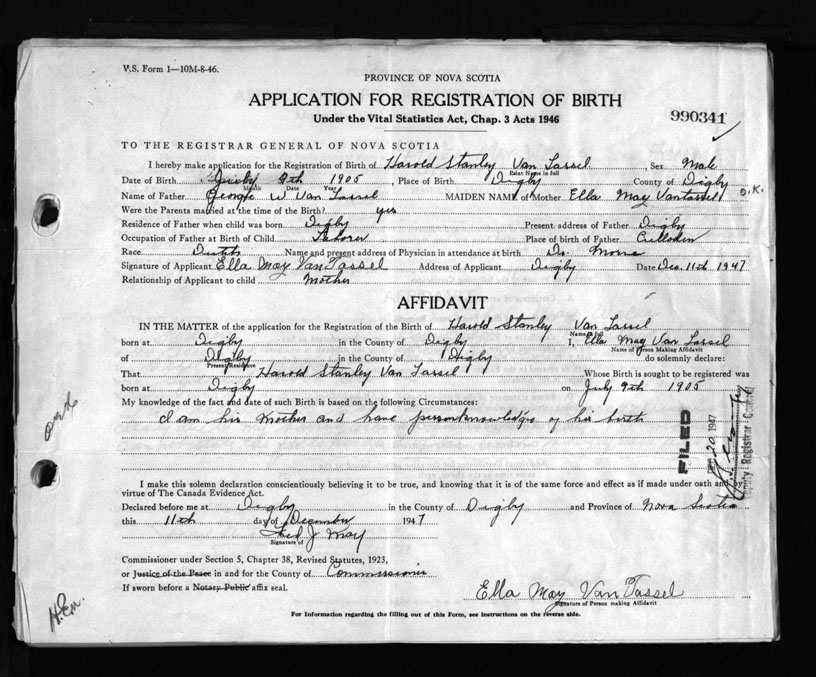 V.S. Form 1—10M-8-46.
PROVINCE OF NOVA SCOTIA
APPLICATION FOR REGISTRATION OF BIRTH
Under the Vital Statistics Act, Chap. 3 Acts 1946
990341
TO THE REGISTRAR GENERAL OF NOVA SCOTIA
I hereby make application for the Registration of Birth of Harold Stanley Van Tassel, Sex Male
Print Name in full
Date of Birth July 9th 1905, Place of Birth Digby County of Digby
Month Date Year
O.K.
Name of Father George W Van Tassel MAIDEN NAME of Mother Ella May Vantassel
Were the Parents married at the time of the Birth? yes
Residence of Father when child was born Digby Present address of Father Digby
Occupation of Father at Birth of Child Laborer Place of birth of Father Culloden
Race Dutch Name and present address of Physician in attendance at birth Dr. Morse
Signature of Applicant Ella May Van Tassel Address of Applicant Digby Date Dec. 11th 1947
Relationship of Applicant to child Mother
AFFIDAVIT
IN THE MATTER of the application for the Registration of the Birth of Harold Stanley Van Tassel
Name in full
born at Digby in the County of Digby I, Ella May Van Tassel
Name of Person Making Affidavit
of Digby in the County of Digby do solemnly declare:
Present Residence
That Harold Stanley Van Tassel Whose Birth is sought to be registered was
born at Digby on July 9th 1905
My knowledge of the fact and date of such Birth is based on the following Circumstances:
I am his Mother and have personknowledge of his birth
FILED
20 1947
Deputy Registrar General
I make this solemn declaration conscientiously believing it to be true, and knowing that it is of the same force and effect as if made under oath and by
virtue of The Canada Evidence Act.
Declared before me at Digby in the County of Digby and Province of Nova Scotia
this 11th day of December 1947
Fred J May
Signature of
Commissioner under Section 5, Chapter 38, Revised Statutes, 1923,
or Justice of the Peace in and for the County of Commissioner
If sworn before a Notary Public affix seal.
Ella May Van Tassel
Signature of Person making Affidavit
For Information regarding the filling out of this Form, see instructions on the reverse side.